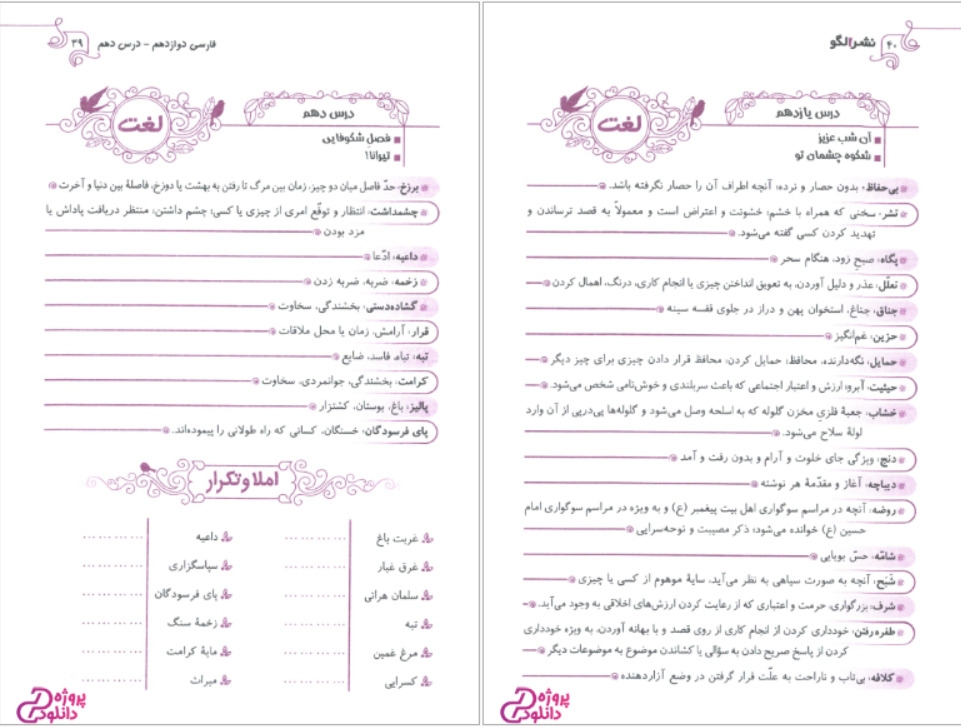 ۴۰ نشر الگو
درس یازدهم
لغت
آن شب عزیز
شکوه چشمان تو
بی‌حفاظ: بدون حصار و نرده؛ آنچه اطراف آن را حصار نگرفته باشد.
تشر: سخنی که همراه با خشم، خشونت و اعتراض است و معمولاً به قصد ترساندن و
تهدید کردن کسی گفته می‌شود.
پگاه: صبح زود، هنگام سحر
تعلّل: عذر و دلیل آوردن، به تعویق انداختن چیزی یا انجام کاری، درنگ، اهمال کردن
جناق: جناغ، استخوان پهن و دراز در جلوی قفسه سینه
حزین: غم‌انگیز
حمایل: نگه‌دارنده، محافظ؛ حمایل کردن: محافظ قرار دادن چیزی برای چیز دیگر
حیثیت: آبرو؛ ارزش و اعتبار اجتماعی که باعث سربلندی و خوش‌نامی شخص می‌شود.
خشاب: جعبهٔ فلزیِ مخزن گلوله که به اسلحه وصل می‌شود و گلوله‌ها پی‌درپی از آن وارد
لولهٔ سلاح می‌شود.
دنج: ویژگی جای خلوت و آرام و بدون رفت و آمد
دیباچه: آغاز و مقدّمهٔ هر نوشته
روضه: آنچه در مراسم سوگواری اهل بیت پیغمبر (ع) و به ویژه در مراسم سوگواری امام
حسین (ع) خوانده می‌شود؛ ذکر مصیبت و نوحه‌سرایی
شامّه: حسّ بویایی
شَبَح: آنچه به صورت سیاهی به نظر می‌آید، سایهٔ موهوم از کسی یا چیزی
شرف: بزرگواری، حرمت و اعتباری که از رعایت کردن ارزش‌های اخلاقی به وجود می‌آید.
طفره‌رفتن: خودداری کردن از انجام کاری از روی قصد و با بهانه آوردن، به ویژه خودداری
کردن از پاسخ صریح دادن به سؤالی یا کشاندن موضوع به موضوعات دیگر
کلافه: بی‌تاب و ناراحت به علّت قرار گرفتن در وضع آزاردهنده
پروژه
دانلود
فارسی دوازدهم - درس دهم ۳۹
درس دهم
لغت
فصلِ شکوفایی
تیرانا!
برزخ: حدّ فاصل میان دو چیز، زمان بین مرگ تا رفتن به بهشت یا دوزخ، فاصلهٔ بین دنیا و آخرت
چشمداشت: انتظار و توقّع امری از چیزی یا کسی؛ چشم داشتن: منتظر دریافت پاداش یا
مزد بودن
داعیه: ادّعا
زخمه: ضربه، ضربه زدن
گشاده‌دستی: بخشندگی، سخاوت
قرار: آرامش، زمان یا محل ملاقات
تبه: تباه، فاسد، ضایع
کرامت: بخشندگی، جوانمردی، سخاوت
پالیز: باغ، بوستان، کشتزار
پای فرسودگان: خستگان، کسانی که راه طولانی را پیموده‌اند.
املا و تکرار
غربت باغ ............ داعیه ............
غرق غبار ............ سپاسگزاری ............
سلمان هراتی ............ پای فرسودگان ............
تبه ............ زخمهٔ سنگ ............
مرغ غمین ............ مایهٔ کرامت ............
کسرایی ............ میراث ............
پروژه
دانلود